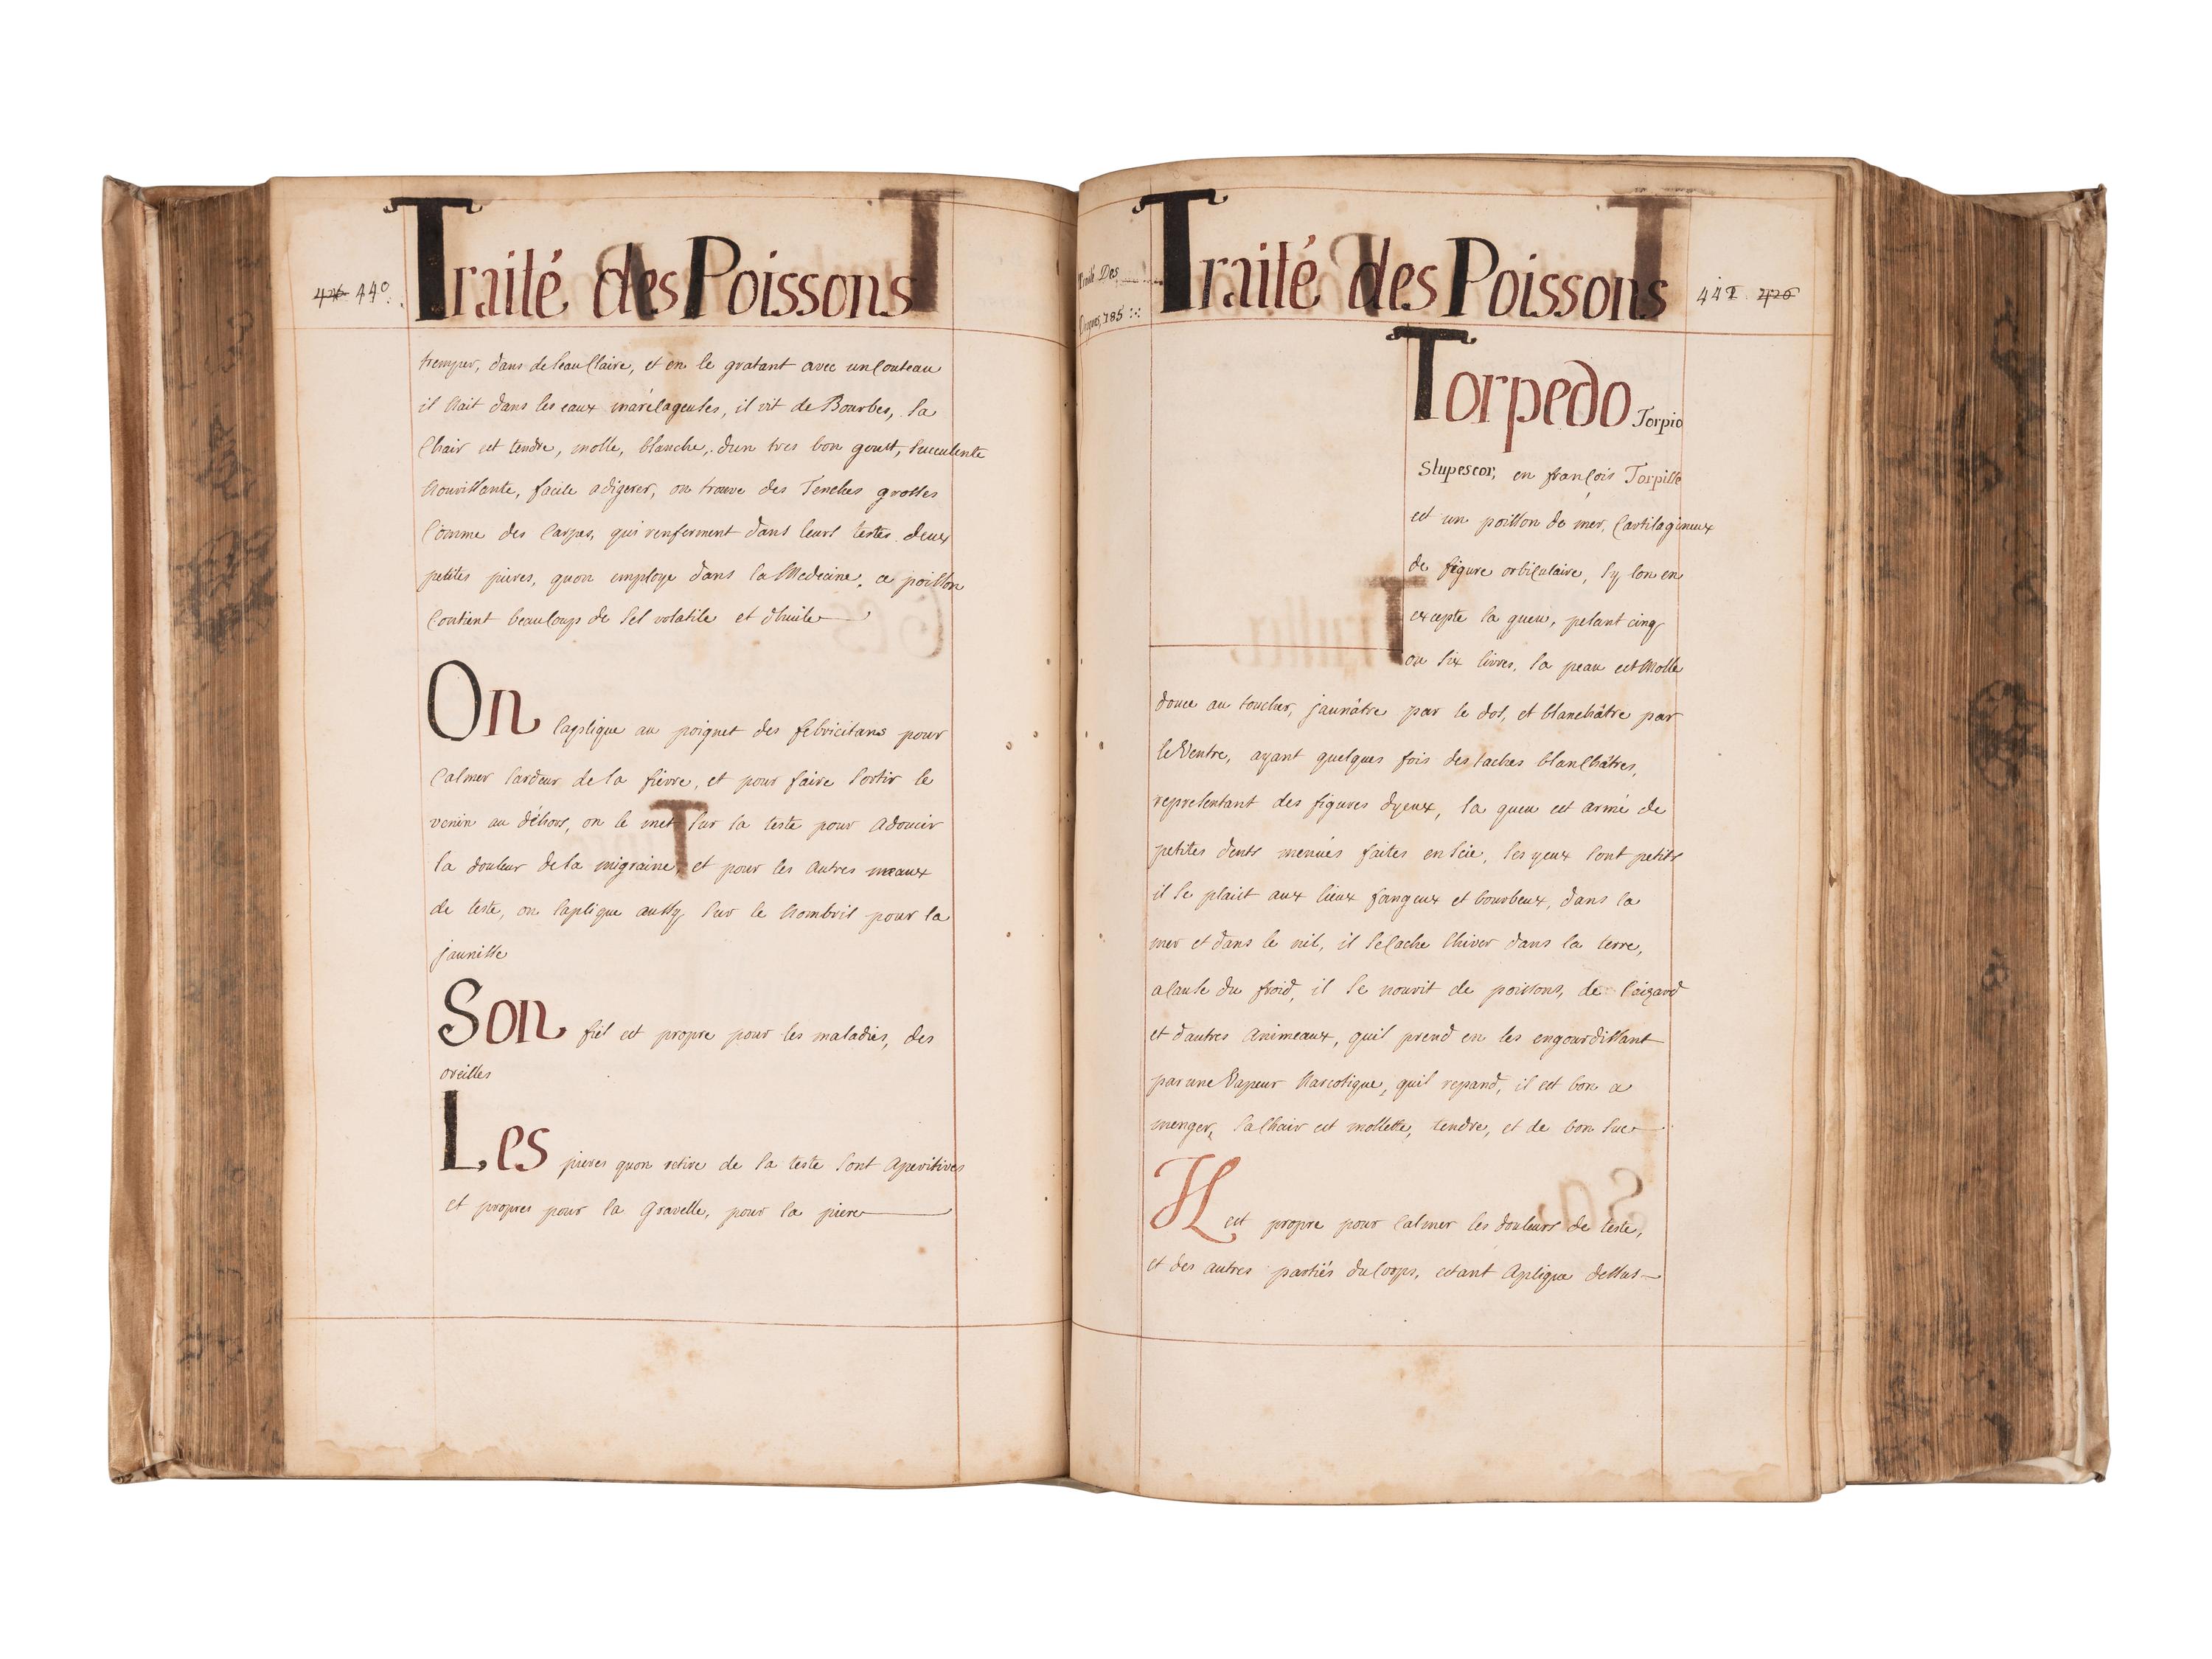 440
Traité des Poissons
tremper, dans de leau Claire, et en le gratant avec un Couteau
il Nait dans les eaux marécageuses, il vit de Bourbes, sa
Chair est tendre, molle, blanche, dun tres bon goust, succulente
Nourissante, facile adigerer, on trouve des Tenches grosses
Comme des Carpes, qui renferment dans leurs testes deux
petites pieres, quon employe dans la Medecine, ce poisson
Contient beaucoups de sel volatile et dhuile
On laplique au poignet des febricitans pour
Calmer lardeur de la fievre, et pour faire sortir le
venin au déhors, on le met sur la teste pour adoucir
la douleur de la migraine, et pour les autres meaux
de teste, on laplique aussy sur le Nombril pour la
jaunisse
Son fiel est propre pour les maladies, des
oreilles
Les pieres quon retire de sa teste sont aperitives
et propres pour la Gravelle, pour la piere
Traité Des
Drogues, 185
Traité des Poissons
442 426
Torpedo Torpio
Stupescor, en françois Torpille
est un poisson de mer, Cartilagineux
de figure orbiculaire, sy lon en
excepte la queu, pesant cinq
ou six livres, sa peau est Molle
douce au toucher, jaunâtre par le dos, et blanchâtre par
le Ventre, ayant quelques fois des taches blanchâtres,
representant des figures dyeux, sa queu est armé de
petites dents menües faites en scie, ses yeux sont petits
il se plaist aux lieux fangeux et bourbeux, dans la
mer et dans le nil, il se cache lhiver dans la terre,
a Cause du froid, il se nourit de poissons, de Laizard
et dautres animeaux, quil prend en les engourdissant
par une Vapeur Narcotique, quil repand, il est bon a
menger, sa Chair est mollette, tendre, et de bon suc
Il est propre pour Calmer les douleurs de teste,
et des autres partiés du Corps, estant Aplique dessus